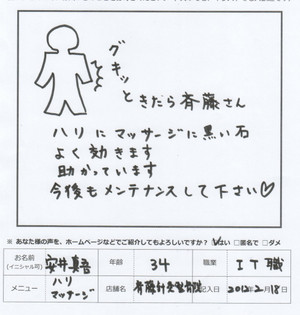 グキッ
ときたら斉藤さん
ハリにマッサージに黒い石
よく効きます
助かっています
今後もメンテナンスして下さい♡
※ あなた様の声を、ホームページなどでご紹介してもよろしいですか? ✓はい □匿名で □ダメ
お名前(イニシャル可) 安井真吾 年齢 34 職業 IT職
メニュー ハリ マッサージ 店舗名 斉藤針灸整骨院 記入日 2012年2月18日